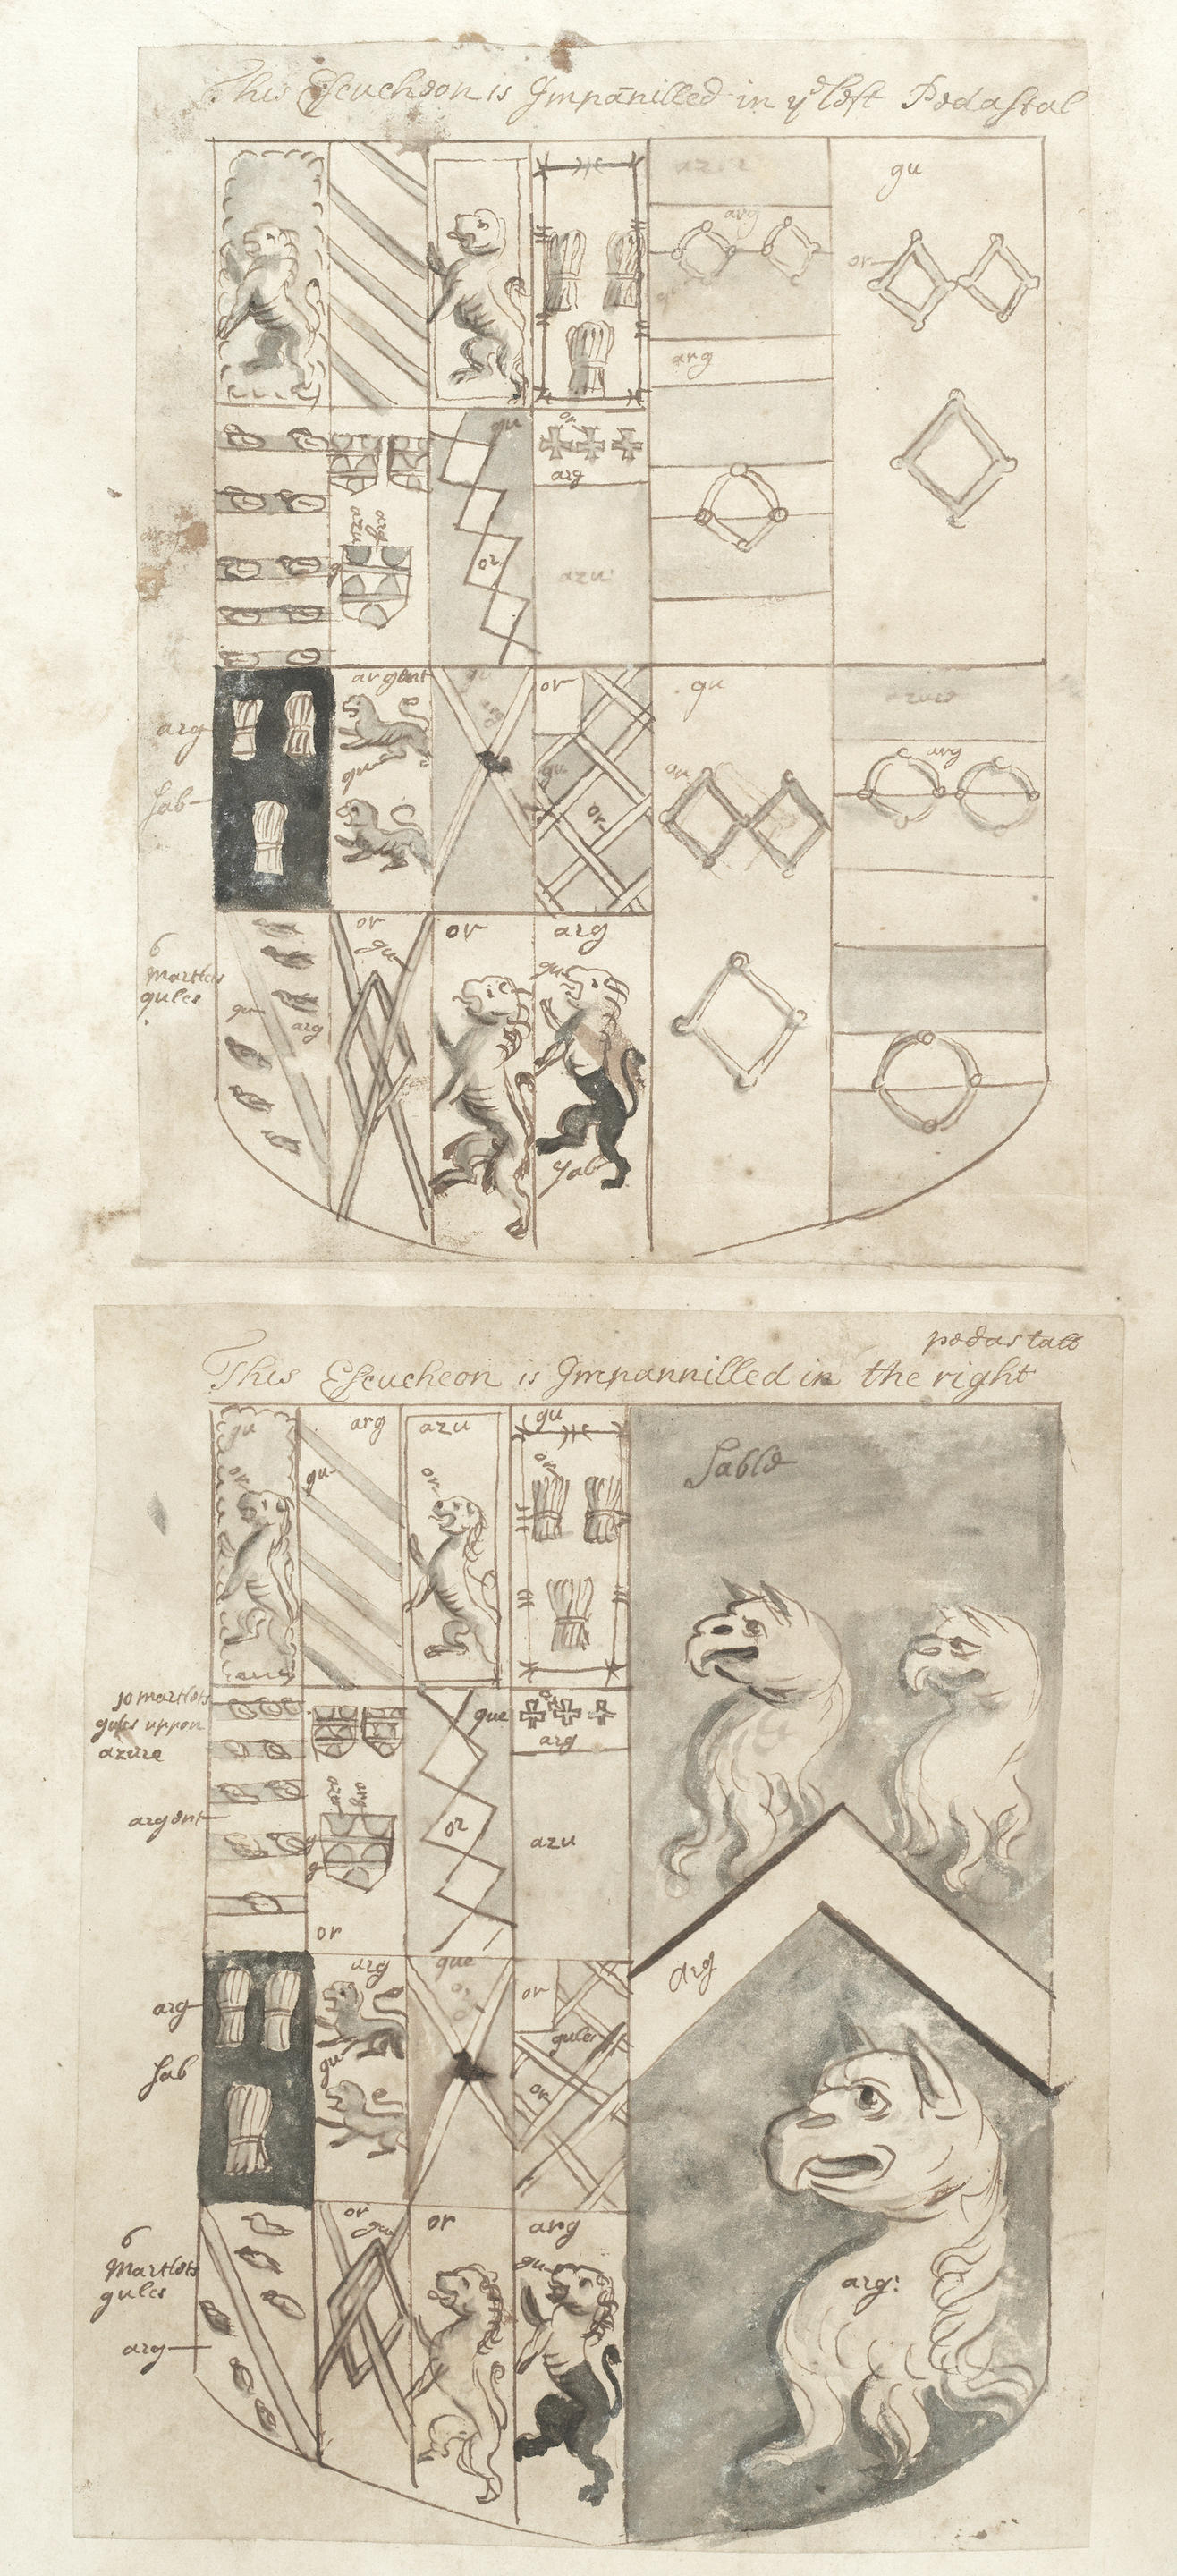 This Escucheon is Impānilled in yᵉ left Pedastal
azure
gu
arg
or
gu
arg
gu
or
arg
or
azu
arg
azu
argent
gu
or
gu
azure
arg
gu
or
or
arg
Sab
gu
arg
6
Martlets
gules
gu
arg
or
gu
or
arg
gu
Sab
pedastall
This Escucheon is Impannilled in the right
gu
arg
azu
gu
or
gu
or
or
Sable
10 martlets
gules uppon
azure
gue
or
arg
azu
arg
argent
g
g
or
azu
or
arg
gue
or
or
arg
gules
arg
gu
or
Sab
6
Martlets
gules
or
gu
or
arg
gu
arg
arg: